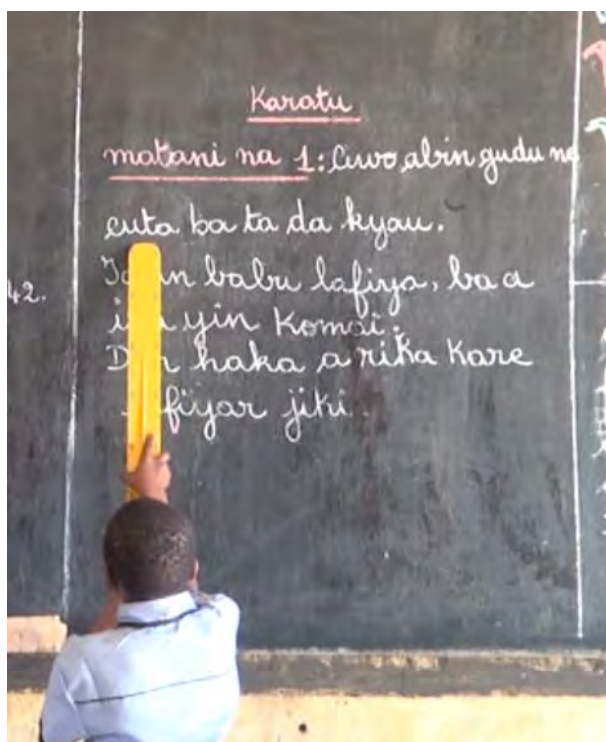 Karatu
matani na 1: Ciwo abin gudu ne
cuta ba ta da kyau.
babu lafiya, ba a
yin komai.
haka a rika kare
jiki.
42.